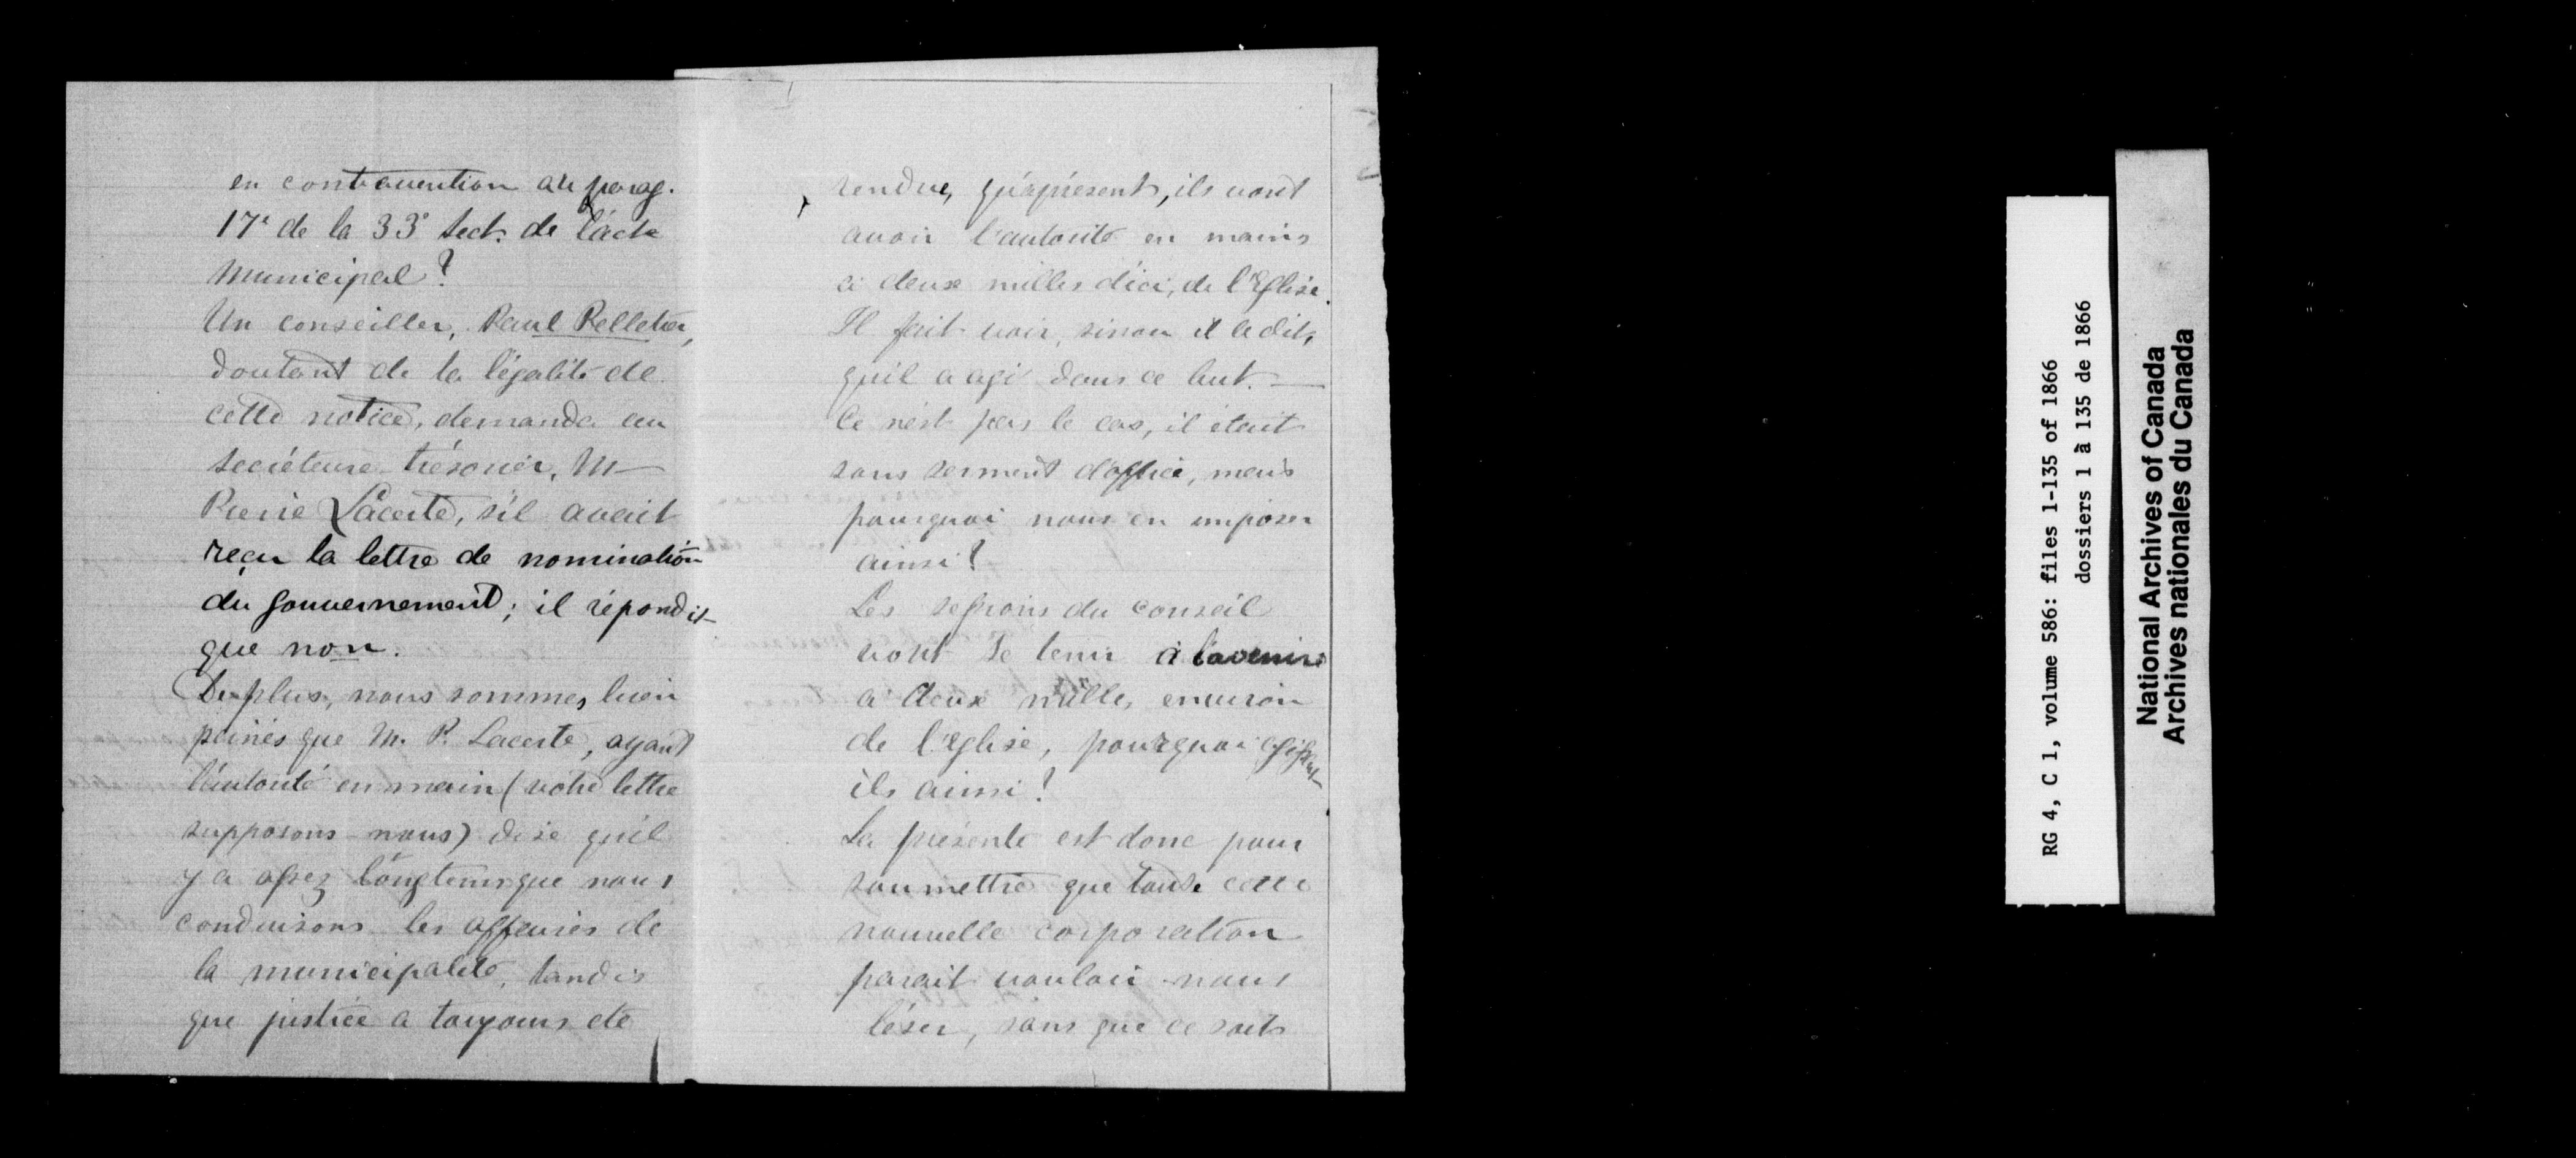 en contravention au parag.
17e de la 33e sect. de l'acte
Municipal?
Un conseiller, Paul Pelletier,
doutant de la légalité de
cette notice, demanda au
secrétaire-trésorier, M
Pierre Lacerte, s'il avait
reçu la lettre de nomination
du Gouvernement; il répondit
que non.
De plus, nous sommes bien
peinés que M. P. Lacerte, ayant
l'autorité en main (votre lettre
supposons-nous) dise qu'il
y a assez longtems que nous
conduisons les affaires de
la municipalité, tandis
que justice a toujours été
rendue, qu'àprésent, ils vont
avoir l'autorité en mains
à deux milles d'ici, de l'Eglise.
Il fait voir, sinon il le dit,
qu'il a agi dans ce but. —
Ce n'est pas le cas, il était
sans serment d'office, mais
pourquoi nous en imposer
ainsi?
Les sessions du conseil
vont se tenir à l'avenir
à deux milles environ
de l'Eglise, pourquoi agissent
ils ainsi?
La présente est donc pour
soumettre que toute cette
nouvelle corporation
parait vouloir nous
léser, sans que ce soit
RG 4, C 1, volume 586: files 1-135 of 1866
dossiers 1 à 135 de 1866
National Archives of Canada
Archives nationales du Canada